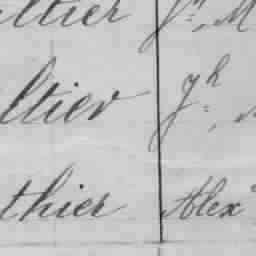 ltier Jn, M
ltier Jh,
thier Alex